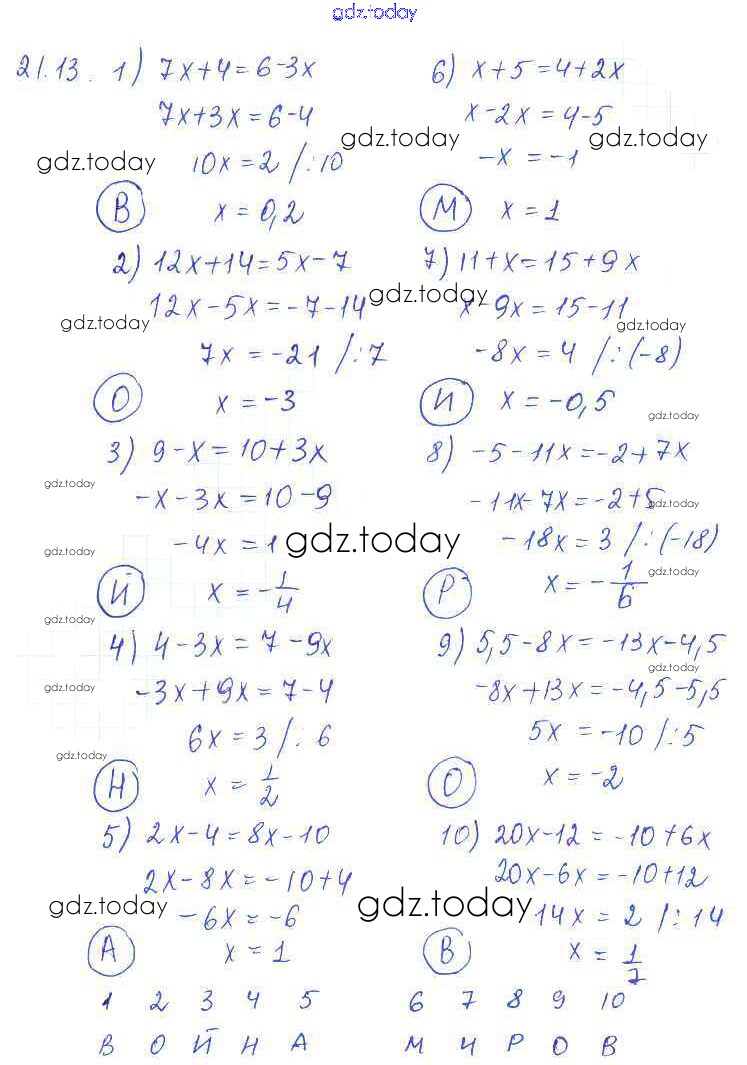 gdz.today
21.13. 1) 7x+4=6-3x
7x+3x=6-4
gdz.today
10x=2 /:10
В x=0,2
2) 12x+14=5x-7
12x-5x=-7-14
gdz.today
7x=-21 /:7
О x=-3
3) 9-x=10+3x
gdz.today
-x-3x=10-9
-4x=1
gdz.today
gdz.today
Й x=-1/4
gdz.today
4) 4-3x=7-9x
gdz.today
-3x+9x=7-4
6x=3 /:6
gdz.today
Н x=1/2
5) 2x-4=8x-10
2x-8x=-10+4
gdz.today
-6x=-6
А x=1
6) x+5=4+2x
x-2x=4-5
gdz.today gdz.today
-x=-1
М x=1
7) 11+x=15+9x
gdz.today
x-9x=15-11
gdz.today
-8x=4 /:(-8)
И x=-0,5
gdz.today
8) -5-11x=-2+7x
-11x-7x=-2+5
gdz.today
-18x=3 /:(-18)
gdz.today
Р x=-1/6
9) 5,5-8x=-13x-4,5
gdz.today
-8x+13x=-4,5-5,5
5x=-10 /:5
О x=-2
10) 20x-12=-10+6x
20x-6x=-10+12
gdz.today
14x=2 /:14
В x=1/7
1 2 3 4 5 6 7 8 9 10
В О Й Н А М И Р О В